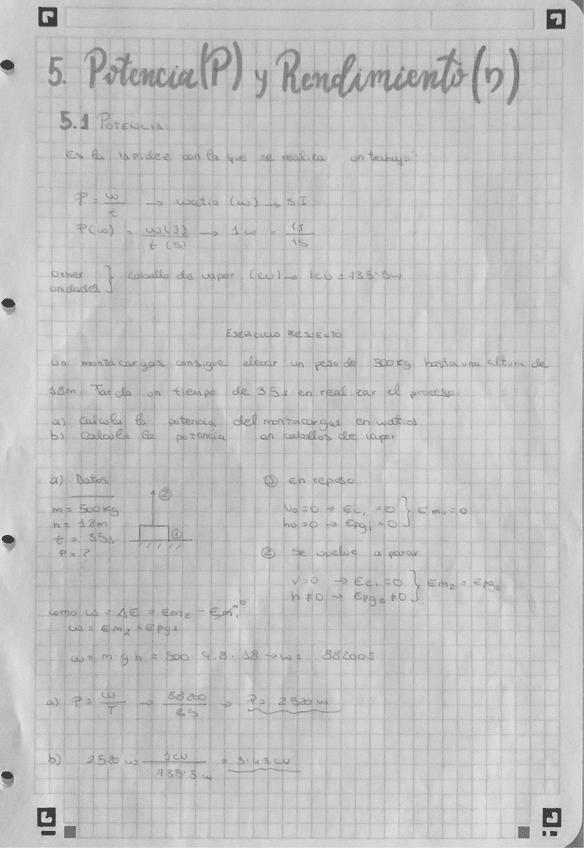 5. Potencia (P) y Rendimiento (η)
5.1 POTENCIA.
Es la rapidez con la que se realiza un trabajo:
P = w/t → watio (w) → SI
P(w) = w(J)/t(s) → 1w = 1J/1s
Otras unidades } caballo de vapor (CV) → 1CV = 735'5w
EJERCICIO RESUELTO
Un montacargas consigue elevar un peso de 500kg hasta una altura de
18m. Tarda un tiempo de 35s en realizar el proceso.
a) Calcula la potencia del montacargas en watios.
b) Calcula la potencia en caballos de vapor
a) Datos
m = 500kg
h = 18m
t = 35s
P = ?
② ①
① en reposo
V₀=0 → Ec₁ = 0
h₀=0 → Epg₁ = 0 } Em₁ = 0
② Se vuelve a parar
V=0 → Ec₂ = 0
h≠0 → Epg₂ ≠ 0 } Em₂ = Epg₂
como w = ΔE = Em₂ - Em₁ 0
w = Em₂ = Epg₂
w = m g h = 500 · 9.8 · 18 → w = 88200J
a) P = w/T → 88200/35 → P = 2520 w
b) 2520 w 1CV/735'5w = 3'43 CV